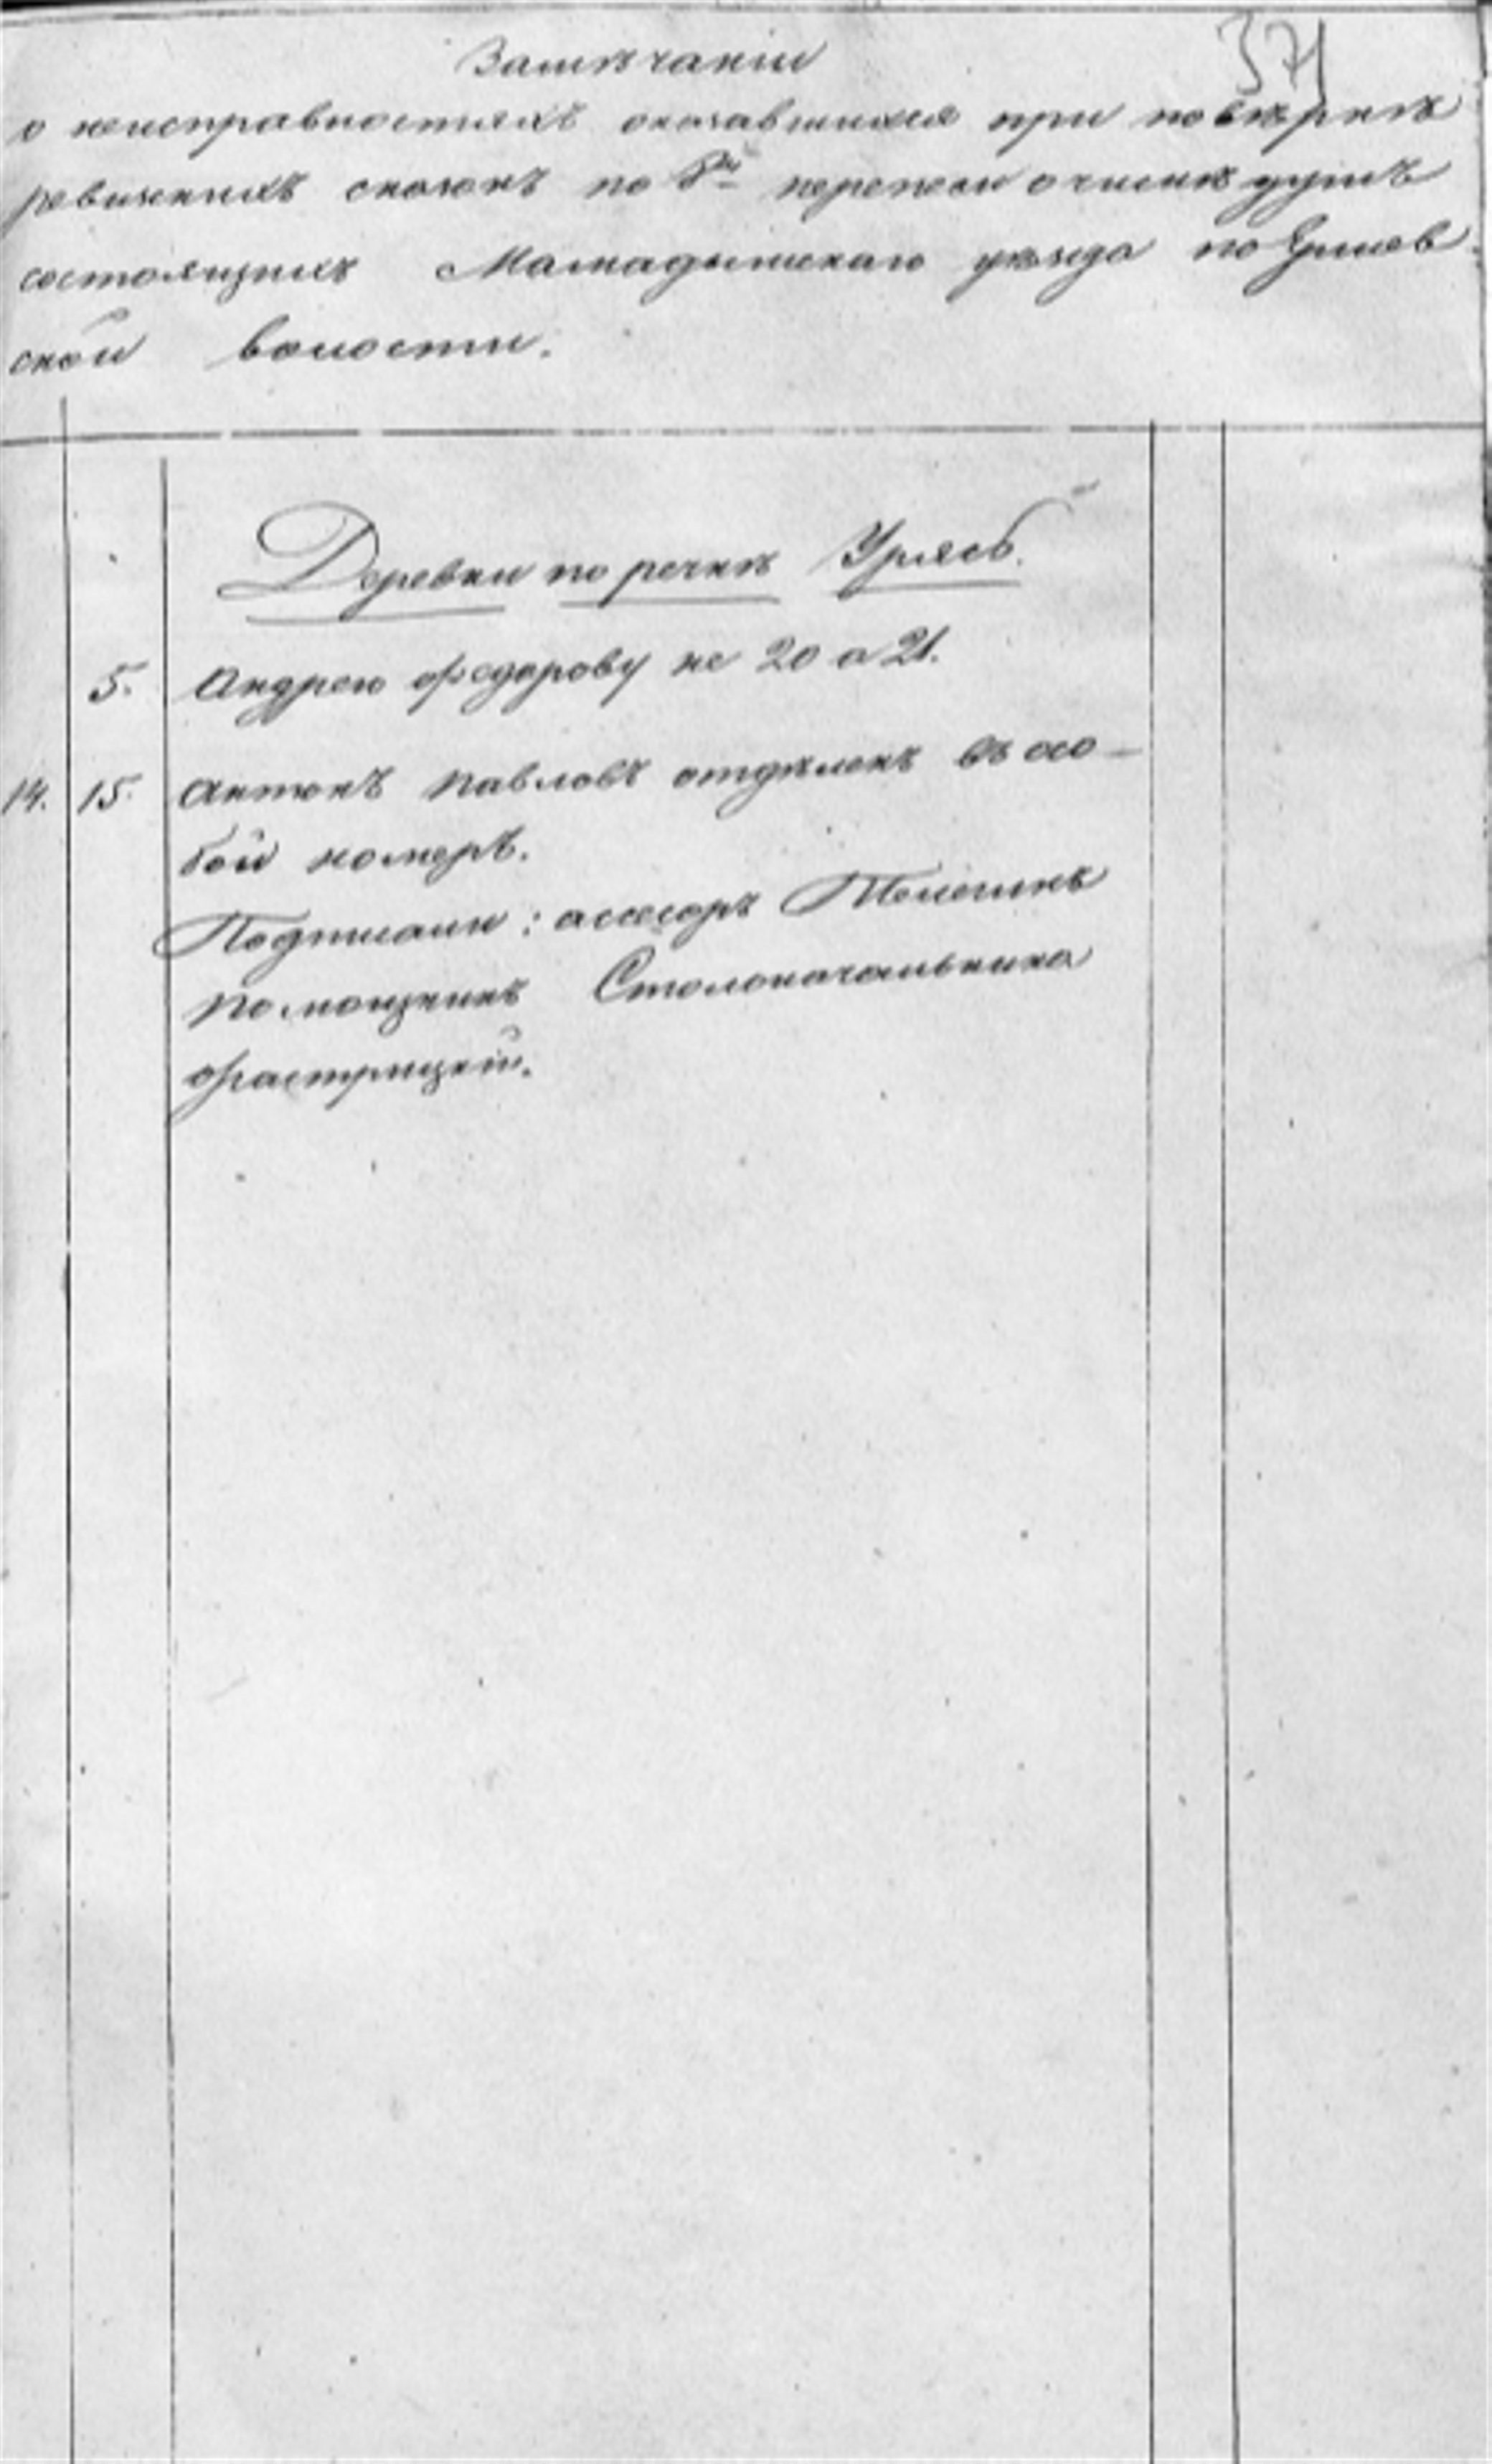 371
Замѣчании
о неисправностяхъ оказавшихся при повѣркѣ
ревизскихъ сказокъ по 8й переписи о числѣ душъ
состоящихъ Мамадышскаго уѣзда по
ской волости.
Деревни по речкѣ Урясь.
5. Андрею Федорову не 20 а 21.
14. 15. Антонъ Павловъ отдѣленъ въ осо-
бой номеръ.
Подписали: асесоръ Телешинъ
Помощникъ Столоначальника